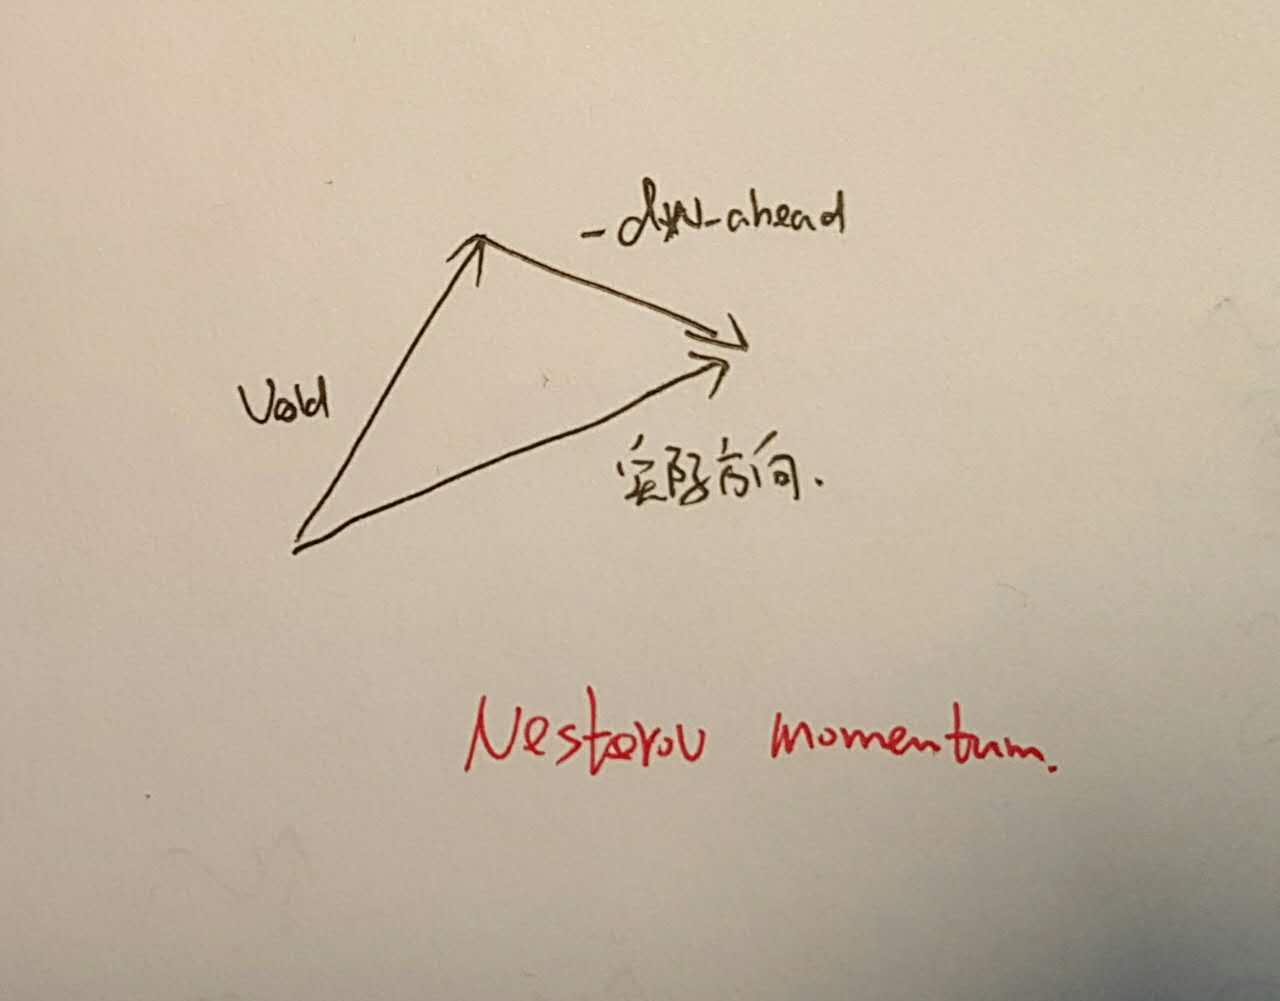 -dw-ahead
Vold
实际方向.
Nesterov momentum.